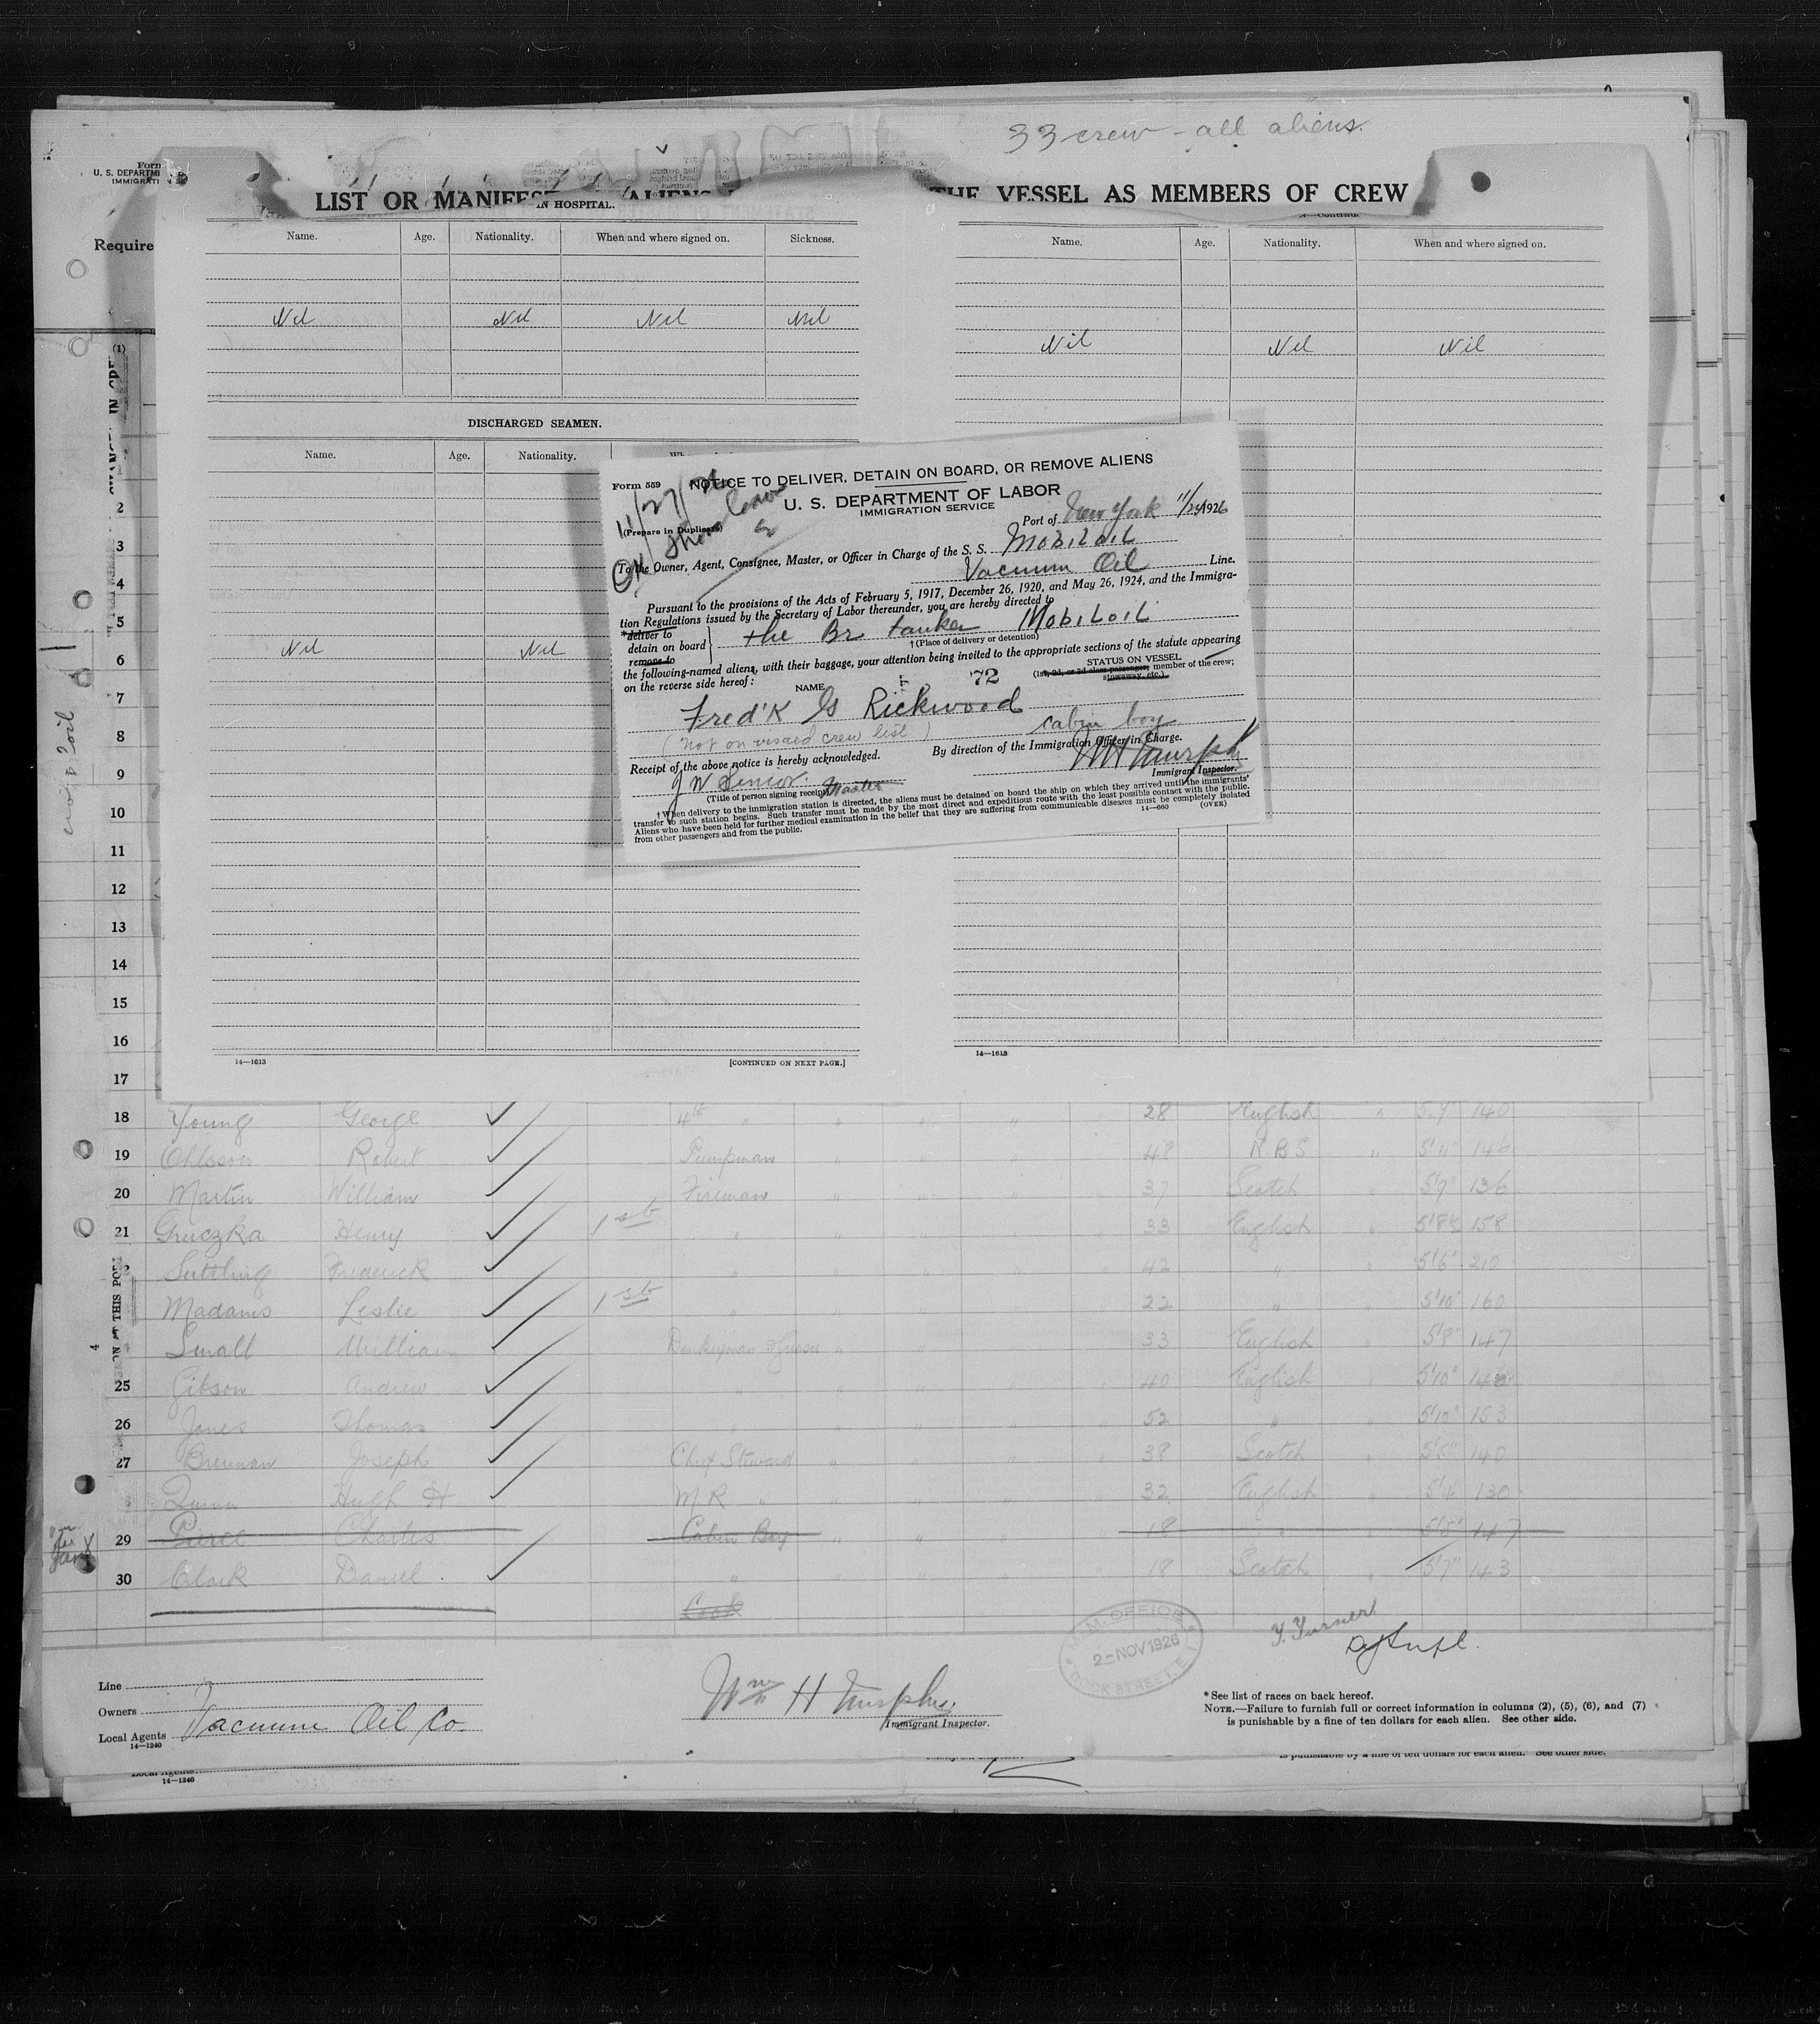 33 crew - all aliens.
Form
U. S. DEPARTM
IMMIGRATI
LIST OR MANIFEST ALIENS THE VESSEL AS MEMBERS OF CREW
Require
IN HOSPITAL.
Name. Age. Nationality. When and where signed on. Sickness.
Nil Nil Nil Nil
Name. Age. Nationality. When and where signed on.
Nil Nil Nil
DISCHARGED SEAMEN.
Name. Age. Nationality.
Nil Nil
14—1613 [CONTINUED ON NEXT PAGE.]
14—1613
Form 559 NOTICE TO DELIVER, DETAIN ON BOARD, OR REMOVE ALIENS
11/27/26
U. S. DEPARTMENT OF LABOR
IMMIGRATION SERVICE
(Prepare in Duplicate)
OK Shore leave
Port of New York 11/24 1926
To the Owner, Agent, Consignee, Master, or Officer in Charge of the S. S. Mobiloil
Vacuum Oil Line.
Pursuant to the provisions of the Acts of February 5, 1917, December 26, 1920, and May 26, 1924, and the Immigra-
tion Regulations issued by the Secretary of Labor thereunder, you are hereby directed to
*deliver to
detain on board the Br tanker Mobiloil
remove to
† (Place of delivery or detention)
the following-named aliens, with their baggage, your attention being invited to the appropriate sections of the statute appearing
on the reverse side hereof:
STATUS ON VESSEL
(1st, 2d, or 3d class passenger, member of the crew,
stowaway, etc.)
NAME 72
Fred'k G Rickwood cabin boy
(not on visaed crew list)
Receipt of the above notice is hereby acknowledged.
By direction of the Immigration Officer in Charge.
J W Senior. Master
W H Murphy
(Title of person signing receipt)
Immigrant Inspector.
† When delivery to the immigration station is directed, the aliens must be detained on board the ship on which they arrived until the immigrants'
transfer to such station begins. Such transfer must be made by the most direct and expeditious route with the least possible contact with the public.
Aliens who have been held for further medical examination in the belief that they are suffering from communicable diseases must be completely isolated
from other passengers and from the public.
14—660 (OVER)
(1)
2
3
4
5
6
7
8
9
10
11
12
13
14
15
16
17
18 Young George 4th " " " " 28 English " 5.9" 140
19 Ohlsson Robert Pumpman " " " 48 R.B.S " 5'11" 146
20 Martin William Fireman " " " 37 Scotch " 5'7" 136
21 Gruczka Henry 1st " " " " 33 English " 5'8½ 158
Suttling Frederick " " " " 42 " " 5'6" 210
Madams Leslie 1st " " " " 22 " " 5'10" 160
Small William Donkeyman & Greaser " " " 33 English " 5'8" 147
25 Gibson Andrew " " " " 40 English " 5'10"
26 Jones Thomas " " " " 52 " " 5'10" 153
27 Brennan Joseph Chief Steward " " " 38 Scotch " 5'5" 140
Quinn Hugh H M.R " " " " 32 English " 5'4" 130
29 Pierce Charles Cabin Boy " " " 18 " 5'5" 147
30 Clark Daniel " " " " 18 Scotch " 5'7" 143
Cook
M.M. OFFICE
2-NOV 1926
DOCK STREET. E.
Y. Turner
Dy Supt.
Line
Owners
Local Agents Vacuum Oil Co.
14—1240
Wm H Murphy
Immigrant Inspector.
* See list of races on back hereof.
NOTE.—Failure to furnish full or correct information in columns (2), (5), (6), and (7)
is punishable by a fine of ten dollars for each alien. See other side.
is punishable by a fine of ten dollars for each alien. See other side.
Local Agents
14—1240